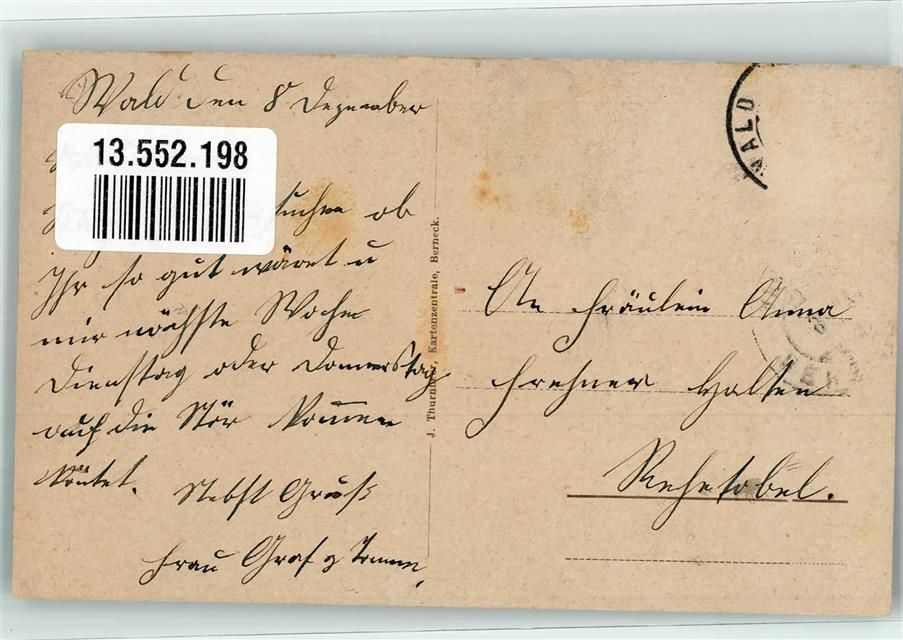 Wald den 8 Dezember
13.552.198
suchen ob
Ihr so gut wäret u
mir nächste Woche
Dienstag oder Donnerstag
auf die Stör kommen
könntet.
Nebst Gruß
Frau Graf z
J. Thurnheer, Kartenzentrale, Berneck.
WALD
An Fräulein Anna
Frehner Holten
Rehetobel.